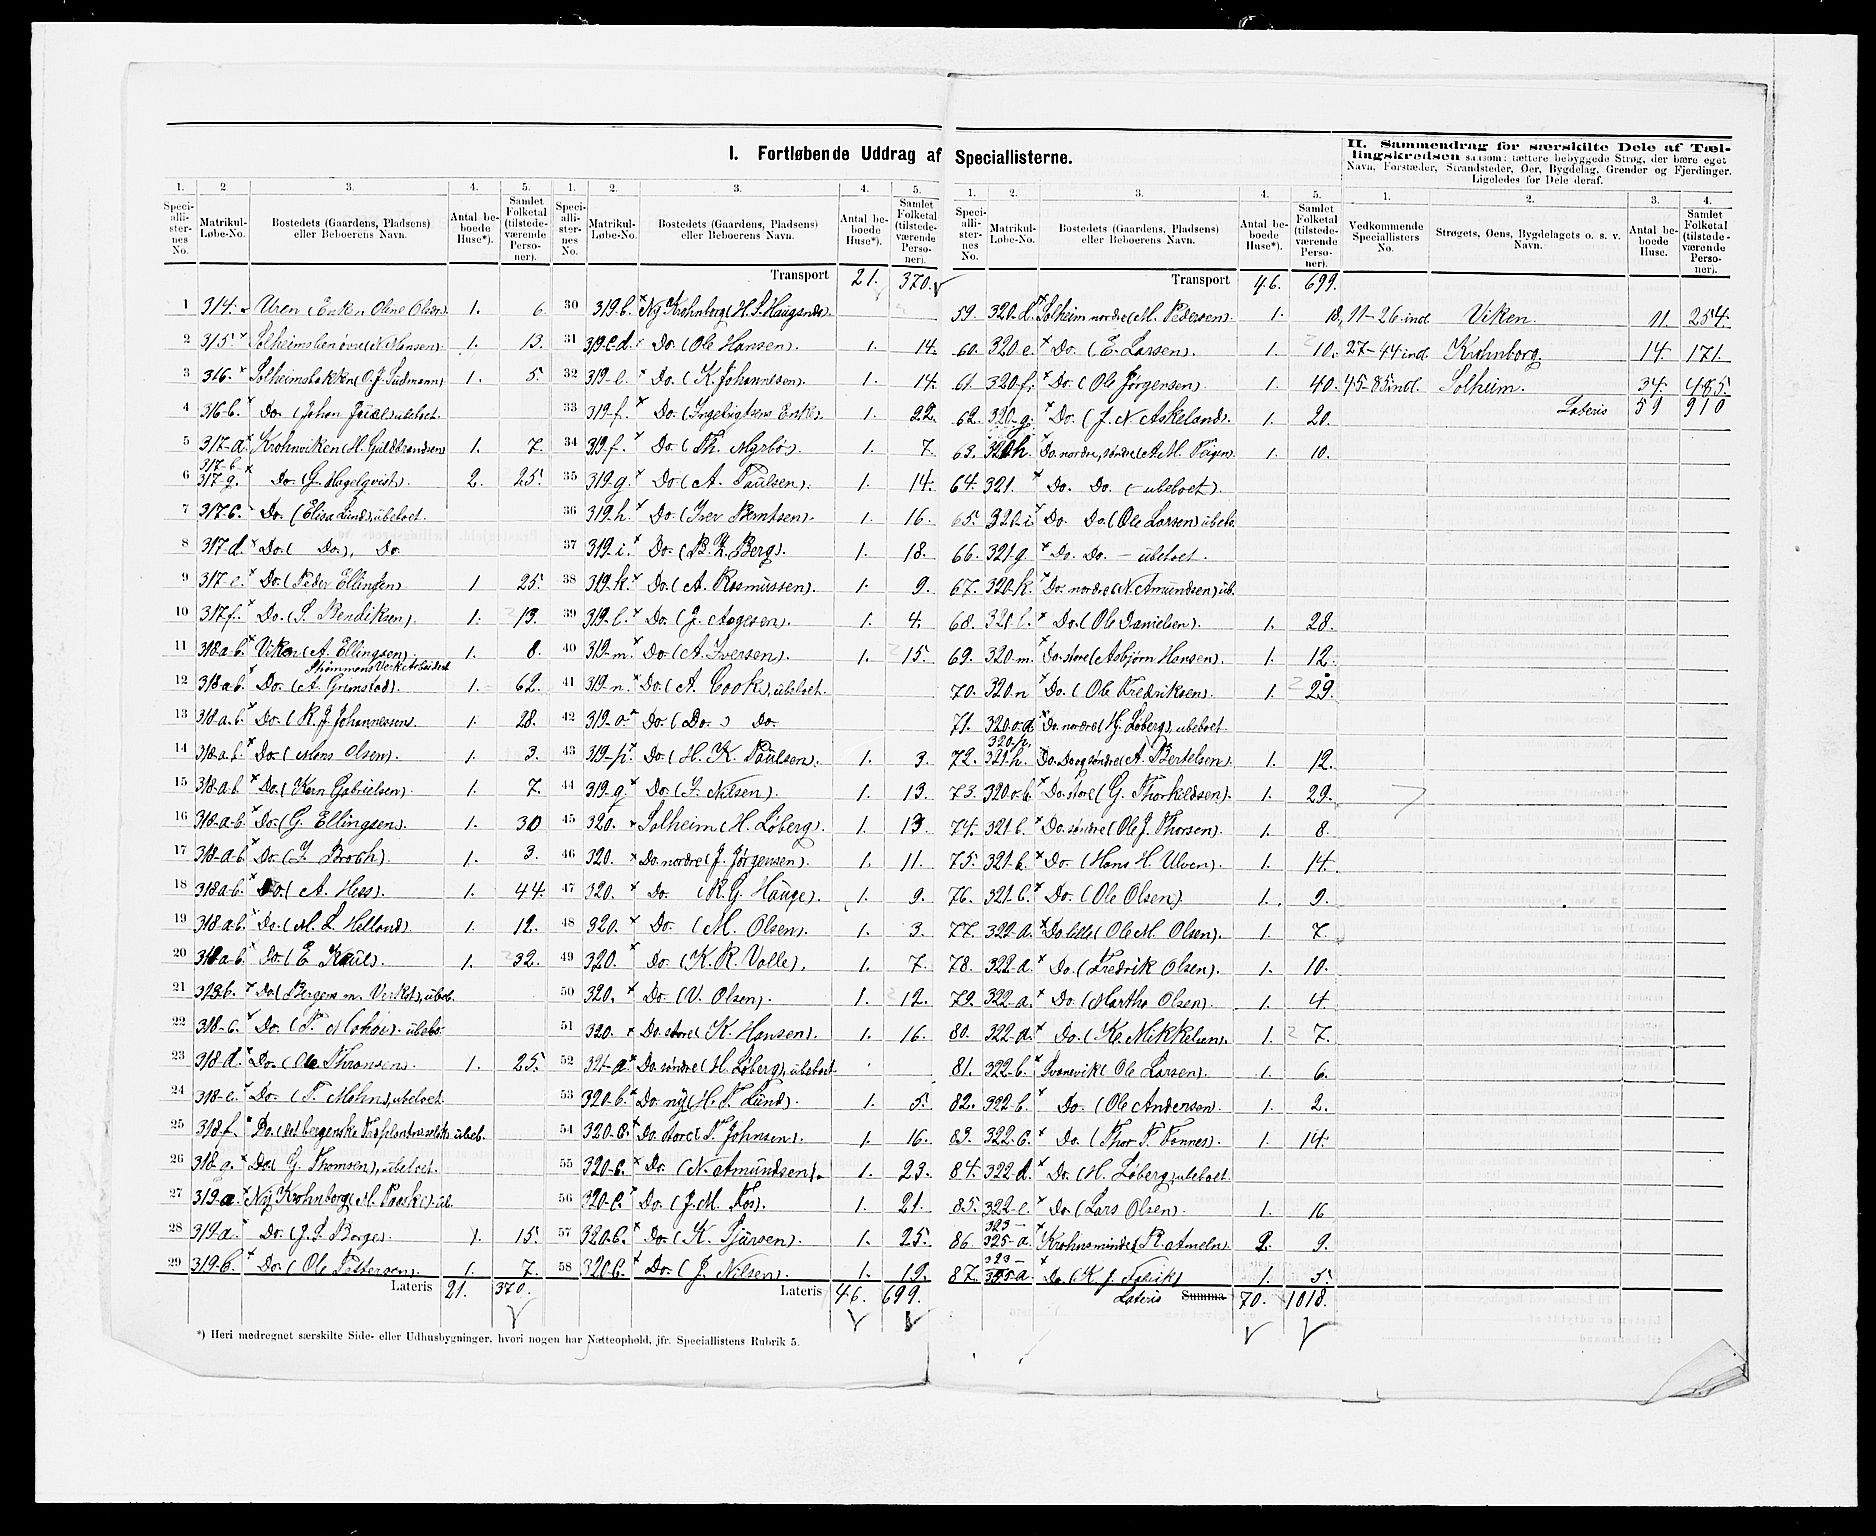 I. Fortløbende Uddrag af Speciallisterne.
II. Sammendrag for særskilte Dele af Tæl-
lingskredsen saasom: tættere bebyggede Strøg, der bære eget
Navn, Forstæder, Strandsteder, Øer, Bygdelag, Grender og Fjerdinger.
Ligeledes for Dele deraf.
1. 2 3. 4. 5.
Speci-alli-ster-nes No. Matrikul-Løbe-No. Bostedets (Gaardens, Pladsens) eller Beboerens Navn. Antal be-boede Huse*). Samlet Folketal (tilstede-værende Perso-ner).
1 314. Uren (Enken Oline Olsdr). 1. 6.
2 315 × Solheimslien øvre (N. Hansen). 1. 13.
3 316. × Solheimsbakken (O. J. Sudmann) 1. 5.
4 316 b. × Do. (Johan Juul) ubeboet.
5 317-a × Krohnviken (H. Guldbrandsen) 1. 7.
6 317-b 317 g. × Do. (G. Hagelqvist). 2. 25.
7 317 c. Do. (Elisa Lund), ubeboet.
8 317 d. × Do. ( Do.), Do.
9 317-e. × Do. (Peder Ellingsen) 1 25.
10 317 f. × Do. (S. Bendiksen). 1. 13.
11 318 a-b. × Viken (A. Ellingsen). 1. 8.
12 318 a-b. × Do. (A. Grimstad). 1. 62.
13 318 a. b. × Do. (R. J. Johannessen). 1. 28.
14 318-a. b. × Do. (Mons Olsen). 1. 3.
15 318-a. b × Do. (Karn Gabrielsen). 1. 7.
16 318-a-b. × Do. (G. Ellingsen). 1. 30
17 318-a-b × Do. (J. Broch). 1. 3.
18 318 a-b. × Do. (A. Hess). 1. 44.
19 318 a-b. × Do. (M. S. Helland). 1. 12.
20 318 a-b. × Do. (E. Kaul). 1. 32.
21 318 b. × Do. (Bergens m. Verksted), ubeb.
22 318-c. × Do. (T. Mohn). ubebo.
23 318 d. × Do. (Ole Thronsen). 1. 25.
24 318-e. × Do. (T. Mohn), ubeboet.
25 318 f. × Do. (det bergenske ubeb.
26 318 × Do. (G. Thomsen), ubeboet.
27 319-a. × Ny Krohnborg (M. Paaske) ub.
28 319 a. × Do. (J. S. Borge). 1. 15.
29 319-b. × Do. (Ole Pettersen). 1. 7.
Lateris 21. 370.
*) Heri medregnet særskilte Side- eller Udhusbygninger, hvori nogen har Natteophold, jfr. Speciallistens Rubrik 5.
1. 2. 3. 4. 5.
Speci-alli-ster-nes No. Matrikul-Løbe-No. Bostedets (Gaardens, Pladsens) eller Beboerens Navn. Antal be-boede Huse*). Samlet Folketal (tilstede-værende Perso-ner).
Transport 21. 370.
30 319-b. × Ny Krohnborg (H. S. Haugsnds).
31 319 c-d. × Do. (Ole Hansen). 1. 14.
32 319-e. × Do. (K. Johannesen). 1. 14.
33 319-f. × Do. (Ingebrigtsens Enke). 1. 22.
34 319-f. × Do. (Th. Myrbø). 1. 7.
35 319-g. × Do. (A. Paulsen). 1. 14.
36 319-h. × Do. (Iver Berntsen). 1. 16.
37 319. i. × Do. (B. Z. Berg). 1. 18.
38 319. k. × Do. (A. Rasmussen). 1. 9.
39 319. l. × Do. (J. Aagesen). 1. 4.
40 319-m. × Do. (A. Iversen). 1. 15.
41 319-n. × Do. (A. Cook), ubeboet.
42 319-o. × Do. (Do.) Do.
43 319-p. × Do. (H. K. Paulsen). 1. 3.
44 319. q. × Do. (J. Nilsen). 1. 13.
45 320. × Solheim (H. Løberg). 1. 13.
46 320. × Do. nordre (J. Jørgensen). 1. 11.
47 320. × Do. (R. G. Hauge). 1. 9.
48 320. × Do. (M. Olsen). 1. 3.
49 320. × Do. (K. R. Valle). 1. 7.
50 320. × Do. (V. Olsen). 1. 12.
51 320 × Do. store (K. Hansen). 1. 16.
52 321-a × Do. søndre (H. Løberg), ubeboet.
53 320-b. × Do. ny (H. T. Lund). 1. 5.
54 320-c. × Do. store (T. Johnsen). 1. 16.
55 320-c. × Do. (N. Amundsen). 1. 23.
56 320-c. × Do. (J. M. Fos). 1. 21.
57 320-c. × Do. (K. Sjursen). 1. 25.
58 320 c. × Do. (J. Nilsen). 1. 19.
Lateris 46. 699.
1. 2. 3. 4. 5.
Speci-alli-ster-nes No. Matrikul-Løbe-No. Bostedets (Gaardens, Pladsens) eller Beboerens Navn. Antal be-boede Huse*). Samlet Folketal (tilstede-værende Perso-ner).
Transport 46. 699.
59 320. d. × Solheim nordre (M. Pedersen). 1. 18.
60. 320. e. × Do. (E. Larsen). 1. 10.
61. 320-f. × Do. (Ole Jørgensen). 1. 40.
62. 320-g. × Do. (J. N. Askeland). 1. 20.
63. 320 h. × Do. nordre, søndre (A. M. Teigen). 1. 10.
64. 321. × Do. Do. (- ubeboet).
65. 320. i. × Do. Do. (Ole Larsen) ubebo.
66. 321 g. × Do. Do. - ubeboet.
67. 320-k. × Do. nordre (N. Amundsen), ub.
68. 321. l. × Do. (Ole Danielsen). 1. 28.
69. 320-m. × Do. store (Asbjørn Hansen). 1. 12.
70. 320. n × Do. (Ole Fredriksen). 1. 29.
71. 320. o. d × Do. nordre (H. Løberg), ubeboet.
72. 320-p. 321. h. Do. Do. og søndre (A. Bertelsen). 1. 12.
73. 320. o. b. × Do. store (G. Thorkeldsen). 1. 29.
74. 321 b. × Do. søndre (Ole J. Thorsen). 1. 8.
75. 321. b. × Do. (Hans H. Ulven). 1. 14.
76. 321. c. × Do. (Ole Olsen). 1. 9.
77. 322. a. × Do. lille (Ole M. Olsen). 1. 7.
78. 322-a. × Do. (Fredrik Olsen). 1. 10.
79. 322-a. × Do. (Martha Olsen). 1. 4.
80. 322-a. × Do. (K. Mikkelsen). 1. 7.
81. 322-b. × Svanevik (Ole Larsen). 1. 6.
82. 322. b. × Do. (Ole Andersen). 1. 2.
83. 322. c. × Do. (Thor T. Tonnes). 1. 14.
84. 322. d. × Do. (H. Løberg), ubeboet.
85. 322-e. × Do. (Lars Olsen). 1. 16
86. 323- 325-a. × Krohnsminde (R. Ameln). 2. 9.
87. 323- 325 a. × Do. (K. J. Fabrik) 1. 5.
Lateris Summa 70. 1018.
1. 2. 3. 4.
Vedkommende Speciallisters No. Strøgets, Øens, Bygdelagets o. s. v. Navn. Antal be-boede Huse. Samlet Folketal (tilstede-værende Perso-ner).
11-26 incl. Viken. 11. 254.
27-44 incl. Krohnborg. 14. 171.
45-85 incl. Solheim. 34. 485.
Lateris 59 910